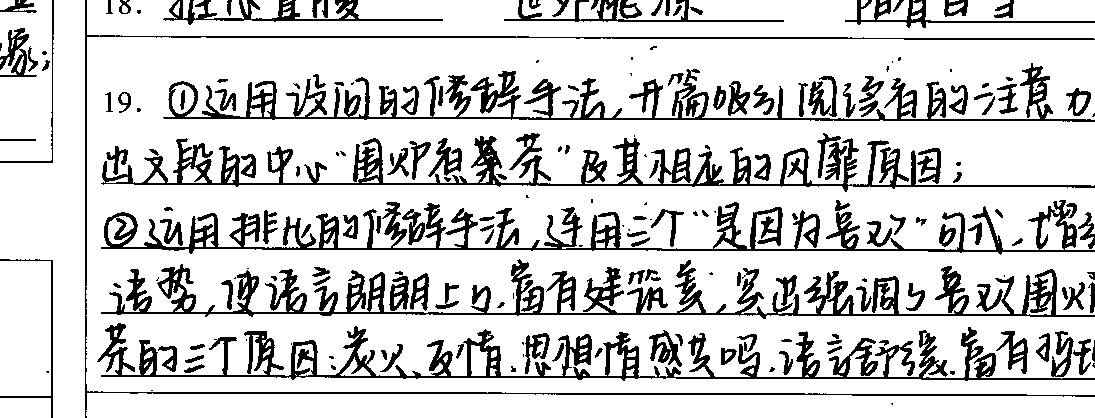 18. 推心置腹 世外桃源 阳春白雪
缘;
19. ①运用设问的修辞手法,开篇吸引阅读者的注意力,
出文段的中心“围炉煮茶”及其相应的风靡原因;
②运用排比的修辞手法,连用三个“是因为喜欢”句式,增
语势,使语言朗朗上口,富有建筑美,突出强调了喜欢围炉
茶的三个原因:炭火、友情、思想情感共鸣,语言舒缓,富有哲理